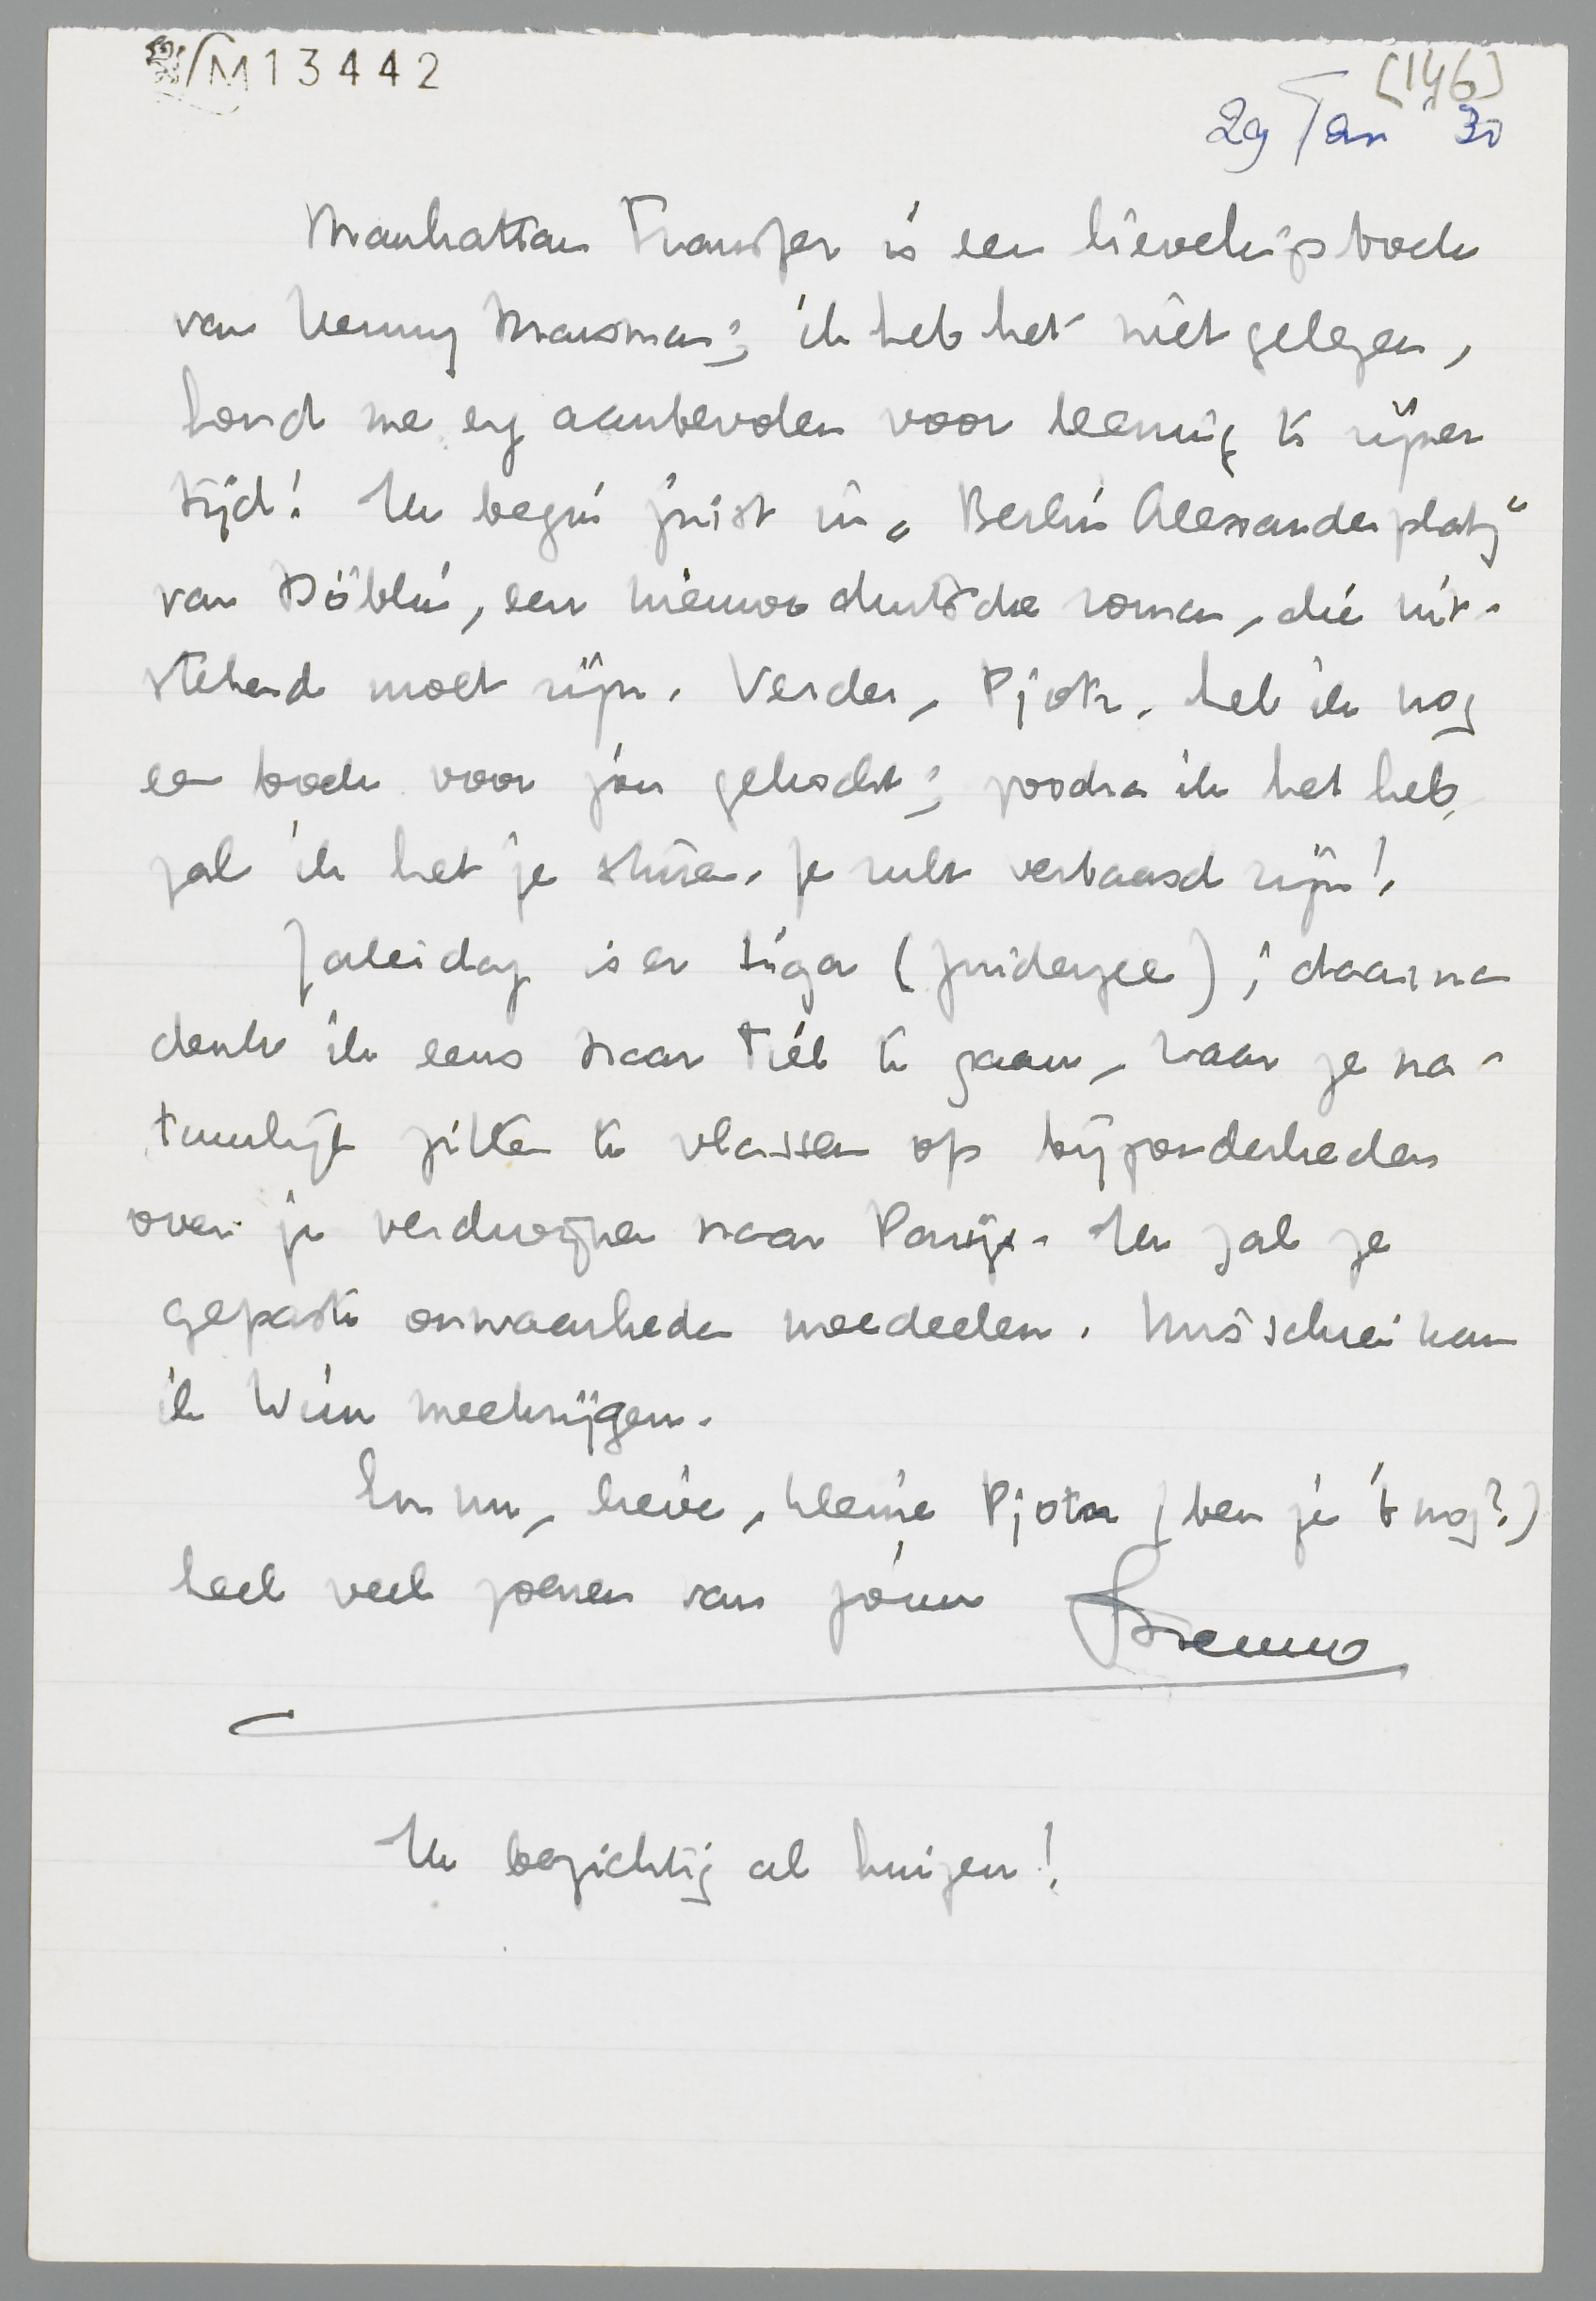 M13442
[146]
29 Jan '30
Manhattan Transfer is een lievelingsboek
van Henny Marsman; ik heb het niet gelezen,
houd me erg aanbevolen voor leening te zijner
tijd! Ik begin juist in „Berlin Alexanderplatz“
van Döblin, een nieuwe duitsche roman, die uit-
stekend moet zijn. Verder, Pjotr, heb ik nog
een boek voor jou gekocht; zoodra ik het heb,
zal ik het je sturen. Je zult verbaasd zijn!
Zaterdag is er Liga (Zuiderzee); daarna
denk ik eens naar Tiel te gaan, waar ze na-
tuurlijk zitten te vlassen op bijzonderheden
over je verdwijnen naar Parijs. Ik zal ze
gepaste onwaarheden meedeelen. Misschien kan
ik Wim meekrijgen.
En nu, lieve, kleine Pjotr (ben je 't nog?)
heel veel zoenen van jouw
Menno
Ik bezichtig al huizen!